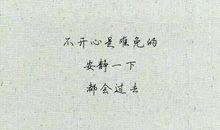 不开心是难免的
安静一下
都会过去